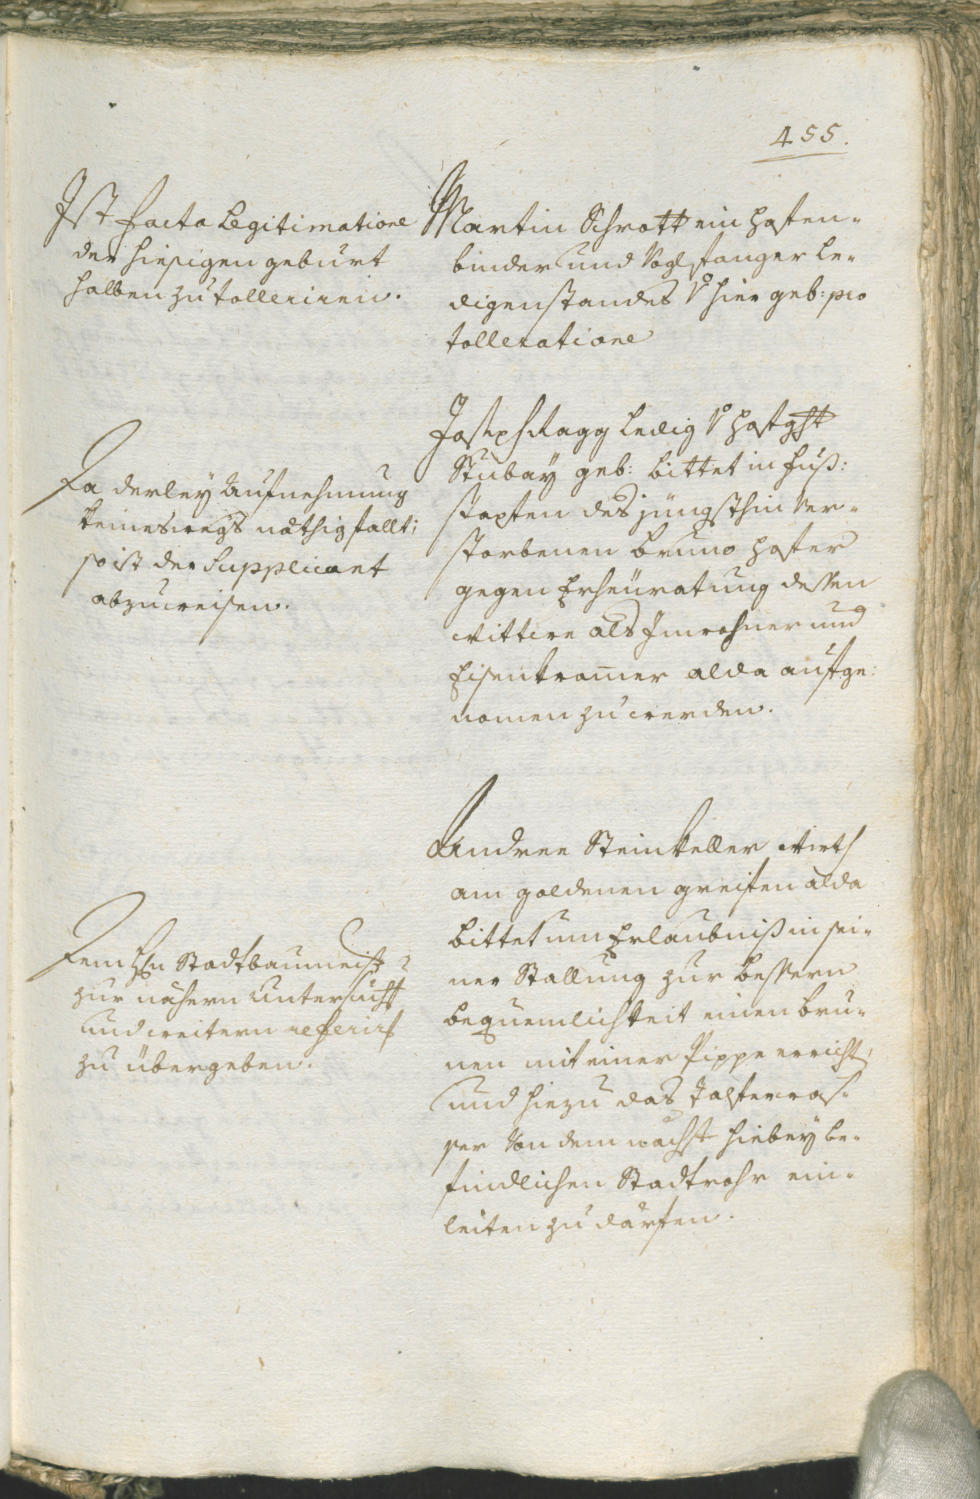 455.
Ist facta Legitimatione
der hiesigen geburt
halben zu tolleriren.
Martin Schrott ein Hafen-
binder und Voglfanger le-
digenstandes v hier geb: pro
tolleratione
Da derley Aufnehmung
keineswegs nöthig fallt;
so ist der Supplicant
abzuweisen.
Joseph Ragg ledig v
Stubaÿ geb: bittet in fuß:
stapfen des jüngsthin ver-
storbenen Bruno Hofer
gegen Erheuratung dessen
Wittwe als Inwohner und
Eisenkramer alda aufge:
nomen zu werden.
Dem Hrn Stadtbaumeister
zur nähern Untersuch
und weitern
zu übergeben.
Andree Steinkeller Wirth
am goldenen greifen alda
bittet um Erlaubniß in sei-
ner Stallung zur bessern
bequemlichkeit einen bru-
nen mit einer Pippe errichten,
und hiezu das
ser von dem nächst hiebeÿ be-
findlichen Stadtrohr ein-
leiten zu därfen.